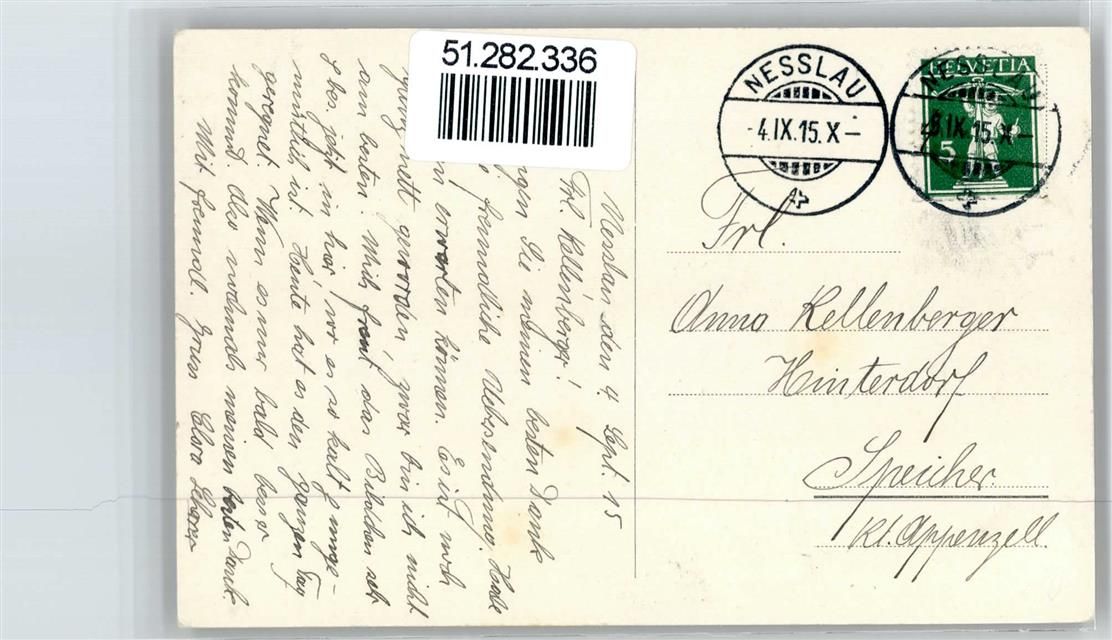 51.282.336
NESSLAU
-4.IX.15.X-
HELVETIA
NESSLAU
IX.15
5
Frl.
Anna Kellenberger
Hinterdorf
Speicher
Kt. Appenzell.
Nesslau den 4. Sept. 15
Frl. Kellenberger!
Sie meinen besten Dank
freundliche Uebersendung. Habe
erwarten können. Es ist noch
geworden, zwar bin ich nicht
am besten. Mich freut das Bildchen sehr
jetzt in hier wo es so kalt & unge-
mütlich ist. Heute hat es den ganzen Tag
geregnet. Wenn es nur bald besser
kommt. Also nochmals meinen besten Dank
Mit freundl. Gruss Clara